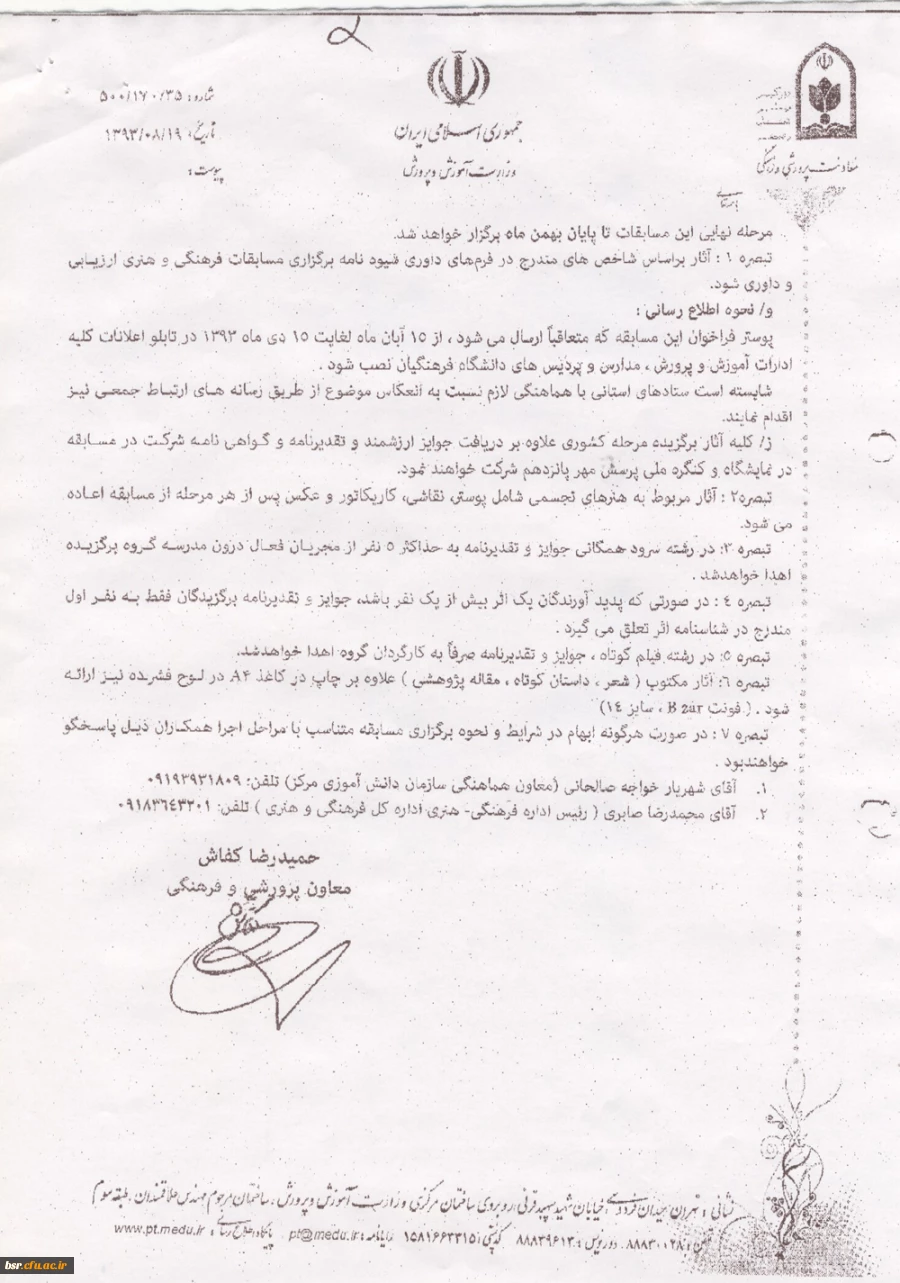 ۲
شماره: ۵۰۰/۱۷۰/۳۵
تاریخ: ۱۳۹۳/۰۸/۱۹
پیوست:
جمهوری اسلامی ایران
وزارت آموزش و پرورش
معاونت پرورشی و فرهنگی
مرحله نهایی این مسابقات تا پایان بهمن ماه برگزار خواهد شد.
تبصره ۱ : آثار براساس شاخص های مندرج در فرم‌های داوری شیوه نامه برگزاری مسابقات فرهنگی و هنری ارزیابی
و داوری شود.
و/ نحوه اطلاع رسانی :
پوستر فراخوان این مسابقه که متعاقباً ارسال می شود ، از ۱۵ آبان ماه لغایت ۱۵ دی ماه ۱۳۹۳ در تابلو اعلانات کلیه
ادارات آموزش و پرورش ، مدارس و پردیس های دانشگاه فرهنگیان نصب شود .
شایسته است ستادهای استانی با هماهنگی لازم نسبت به انعکاس موضوع از طریق رسانه های ارتباط جمعی نیز
اقدام نمایند.
ز/ کلیه آثار برگزیده مرحله کشوری علاوه بر دریافت جوایز ارزشمند و تقدیرنامه و گواهی نامه شرکت در مسابقه
در نمایشگاه و کنگره ملی پرسش مهر پانزدهم شرکت خواهند نمود.
تبصره۲ : آثار مربوط به هنرهای تجسمی شامل پوستر، نقاشی، کاریکاتور و عکس پس از هر مرحله از مسابقه اعاده
می شود.
تبصره ۳: در رشته سرود همگانی جوایز و تقدیرنامه به حداکثر ۵ نفر از مجریان فعال درون مدرسه گروه برگزیده
اهدا خواهدشد .
تبصره ٤ : در صورتی که پدید آورندگان یک اثر بیش از یک نفر باشد، جوایز و تقدیرنامه برگزیدگان فقط به نفر اول
مندرج در شناسنامه اثر تعلق می گیرد .
تبصره ۵: در رشته فیلم کوتاه ، جوایز و تقدیرنامه صرفاً به کارگردان گروه اهدا خواهدشد.
تبصره ٦: آثار مکتوب ( شعر ، داستان کوتاه ، مقاله پژوهشی ) علاوه بر چاپ در کاغذ A۴ در لوح فشرده نیز ارائه
شود . ( فونت B zar ، سایز ۱٤)
تبصره ۷ : در صورت هرگونه ابهام در شرایط و نحوه برگزاری مسابقه متناسب با مراحل اجرا همکاران ذیل پاسخگو
خواهندبود .
۱. آقای شهریار خواجه صالحانی (معاون هماهنگی سازمان دانش آموزی مرکز) تلفن: ۰۹۱۹۳۹۳۱۸۰۹
۲. آقای محمدرضا صابری ( رئیس اداره فرهنگی- هنری اداره کل فرهنگی و هنری ) تلفن: ۰۹۱۸۳٦٤۳۳۰۱
حمیدرضا کفاش
معاون پرورشی و فرهنگی
نشانی : تهران، میدان فردوسی، خیابان شهید سپهبد قرنی، روبروی ساختمان مرکزی وزارت آموزش و پرورش ، ساختمان مرحوم مهندس علاقمندان ، طبقه سوم
تلفن: ۸۸۸۳۰۰۲۸ دورنویس: ۸۸۸۳۹۶۱۳ کد پستی: ۱۵۸۱۶۶۳۳۱۵ رایانامه: pt@medu.ir پایگاه اطلاع رسانی: www.pt.medu.ir
bsr.cfu.ac.ir